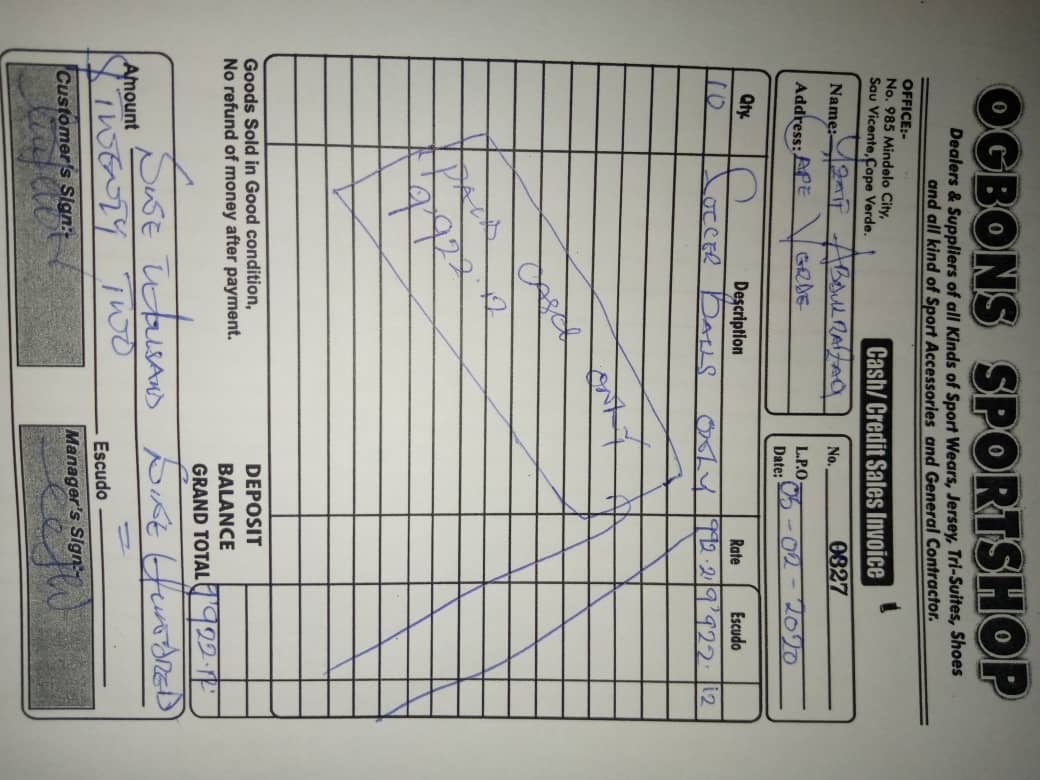 OGBONS SPORTSHOP
Dealers & Suppliers of all Kinds of Sport Wears, Jersey, Tri-Suites, Shoes
and all kind of Sport Accessories and General Contractor.
OFFICE:-
No. 985 Mindelo City,
Sau Vicente, Cape Verde.
Cash/Credit Sales Invoice
Name:
Address: CAPE VERDE
No. 0827
L.P.O
Date: 05-02-2020
Qty. Description Rate Escudo
10 SOCCER BALLS ONLY 992.21 9'922. 12
PAID
9'922.12
ONLY
Goods Sold in Good condition,
No refund of money after payment.
DEPOSIT
BALANCE
GRAND TOTAL 9'922.12
Amount NINE THOUSAND NINE HUNDRED
& TWENTY TWO = Escudo
Customer's Sign:-
Manager's Sign:-